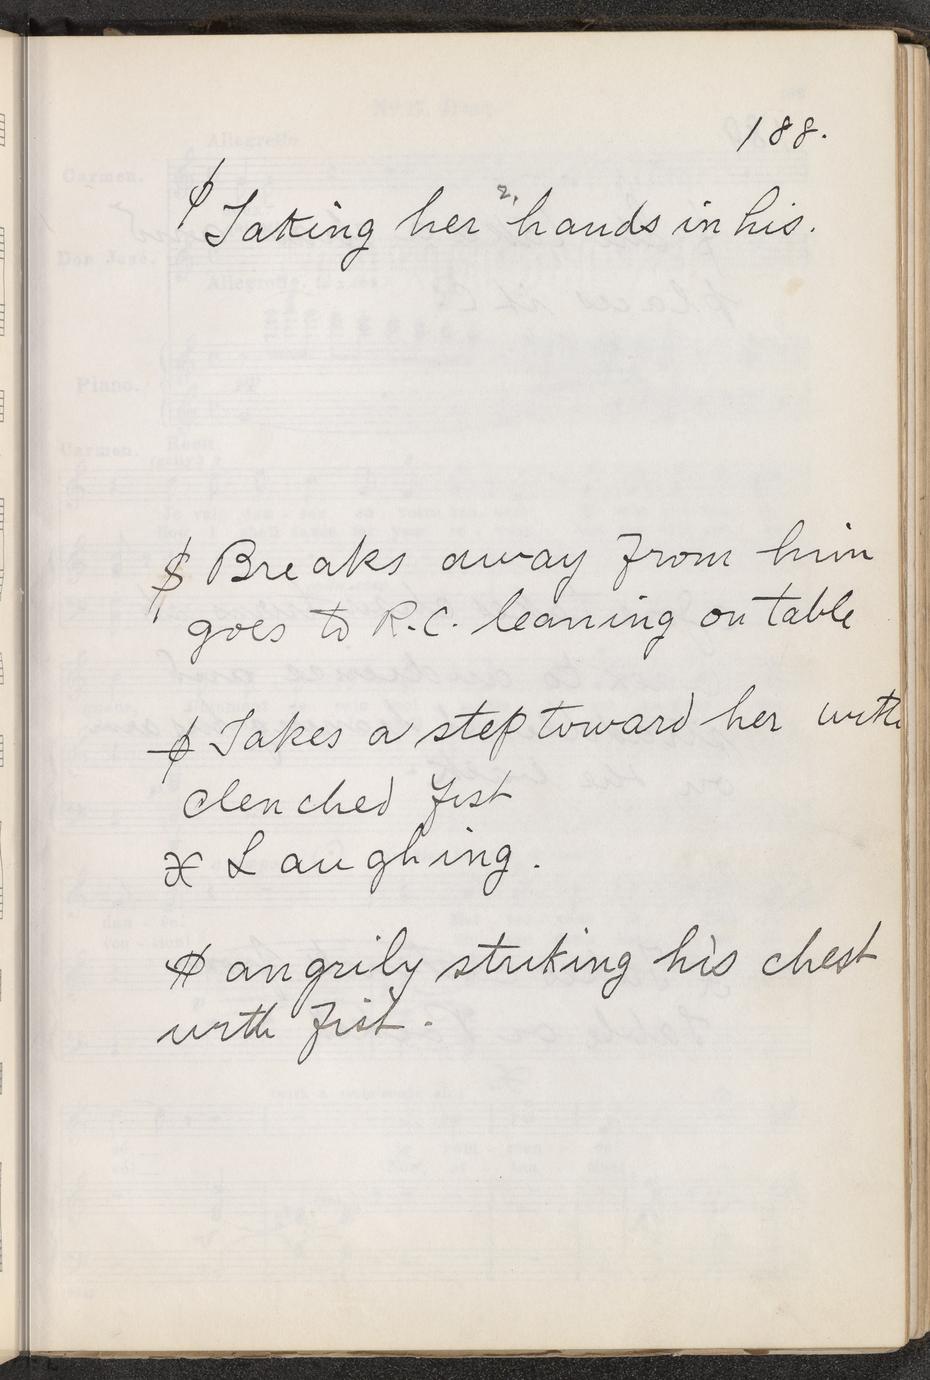 188.
Taking her 2, hands in his.
$ Breaks away from him
goes to R.C. leaning on table
Takes a step toward her with
clenched fist
Laughing.
angrily striking his chest
with fist.